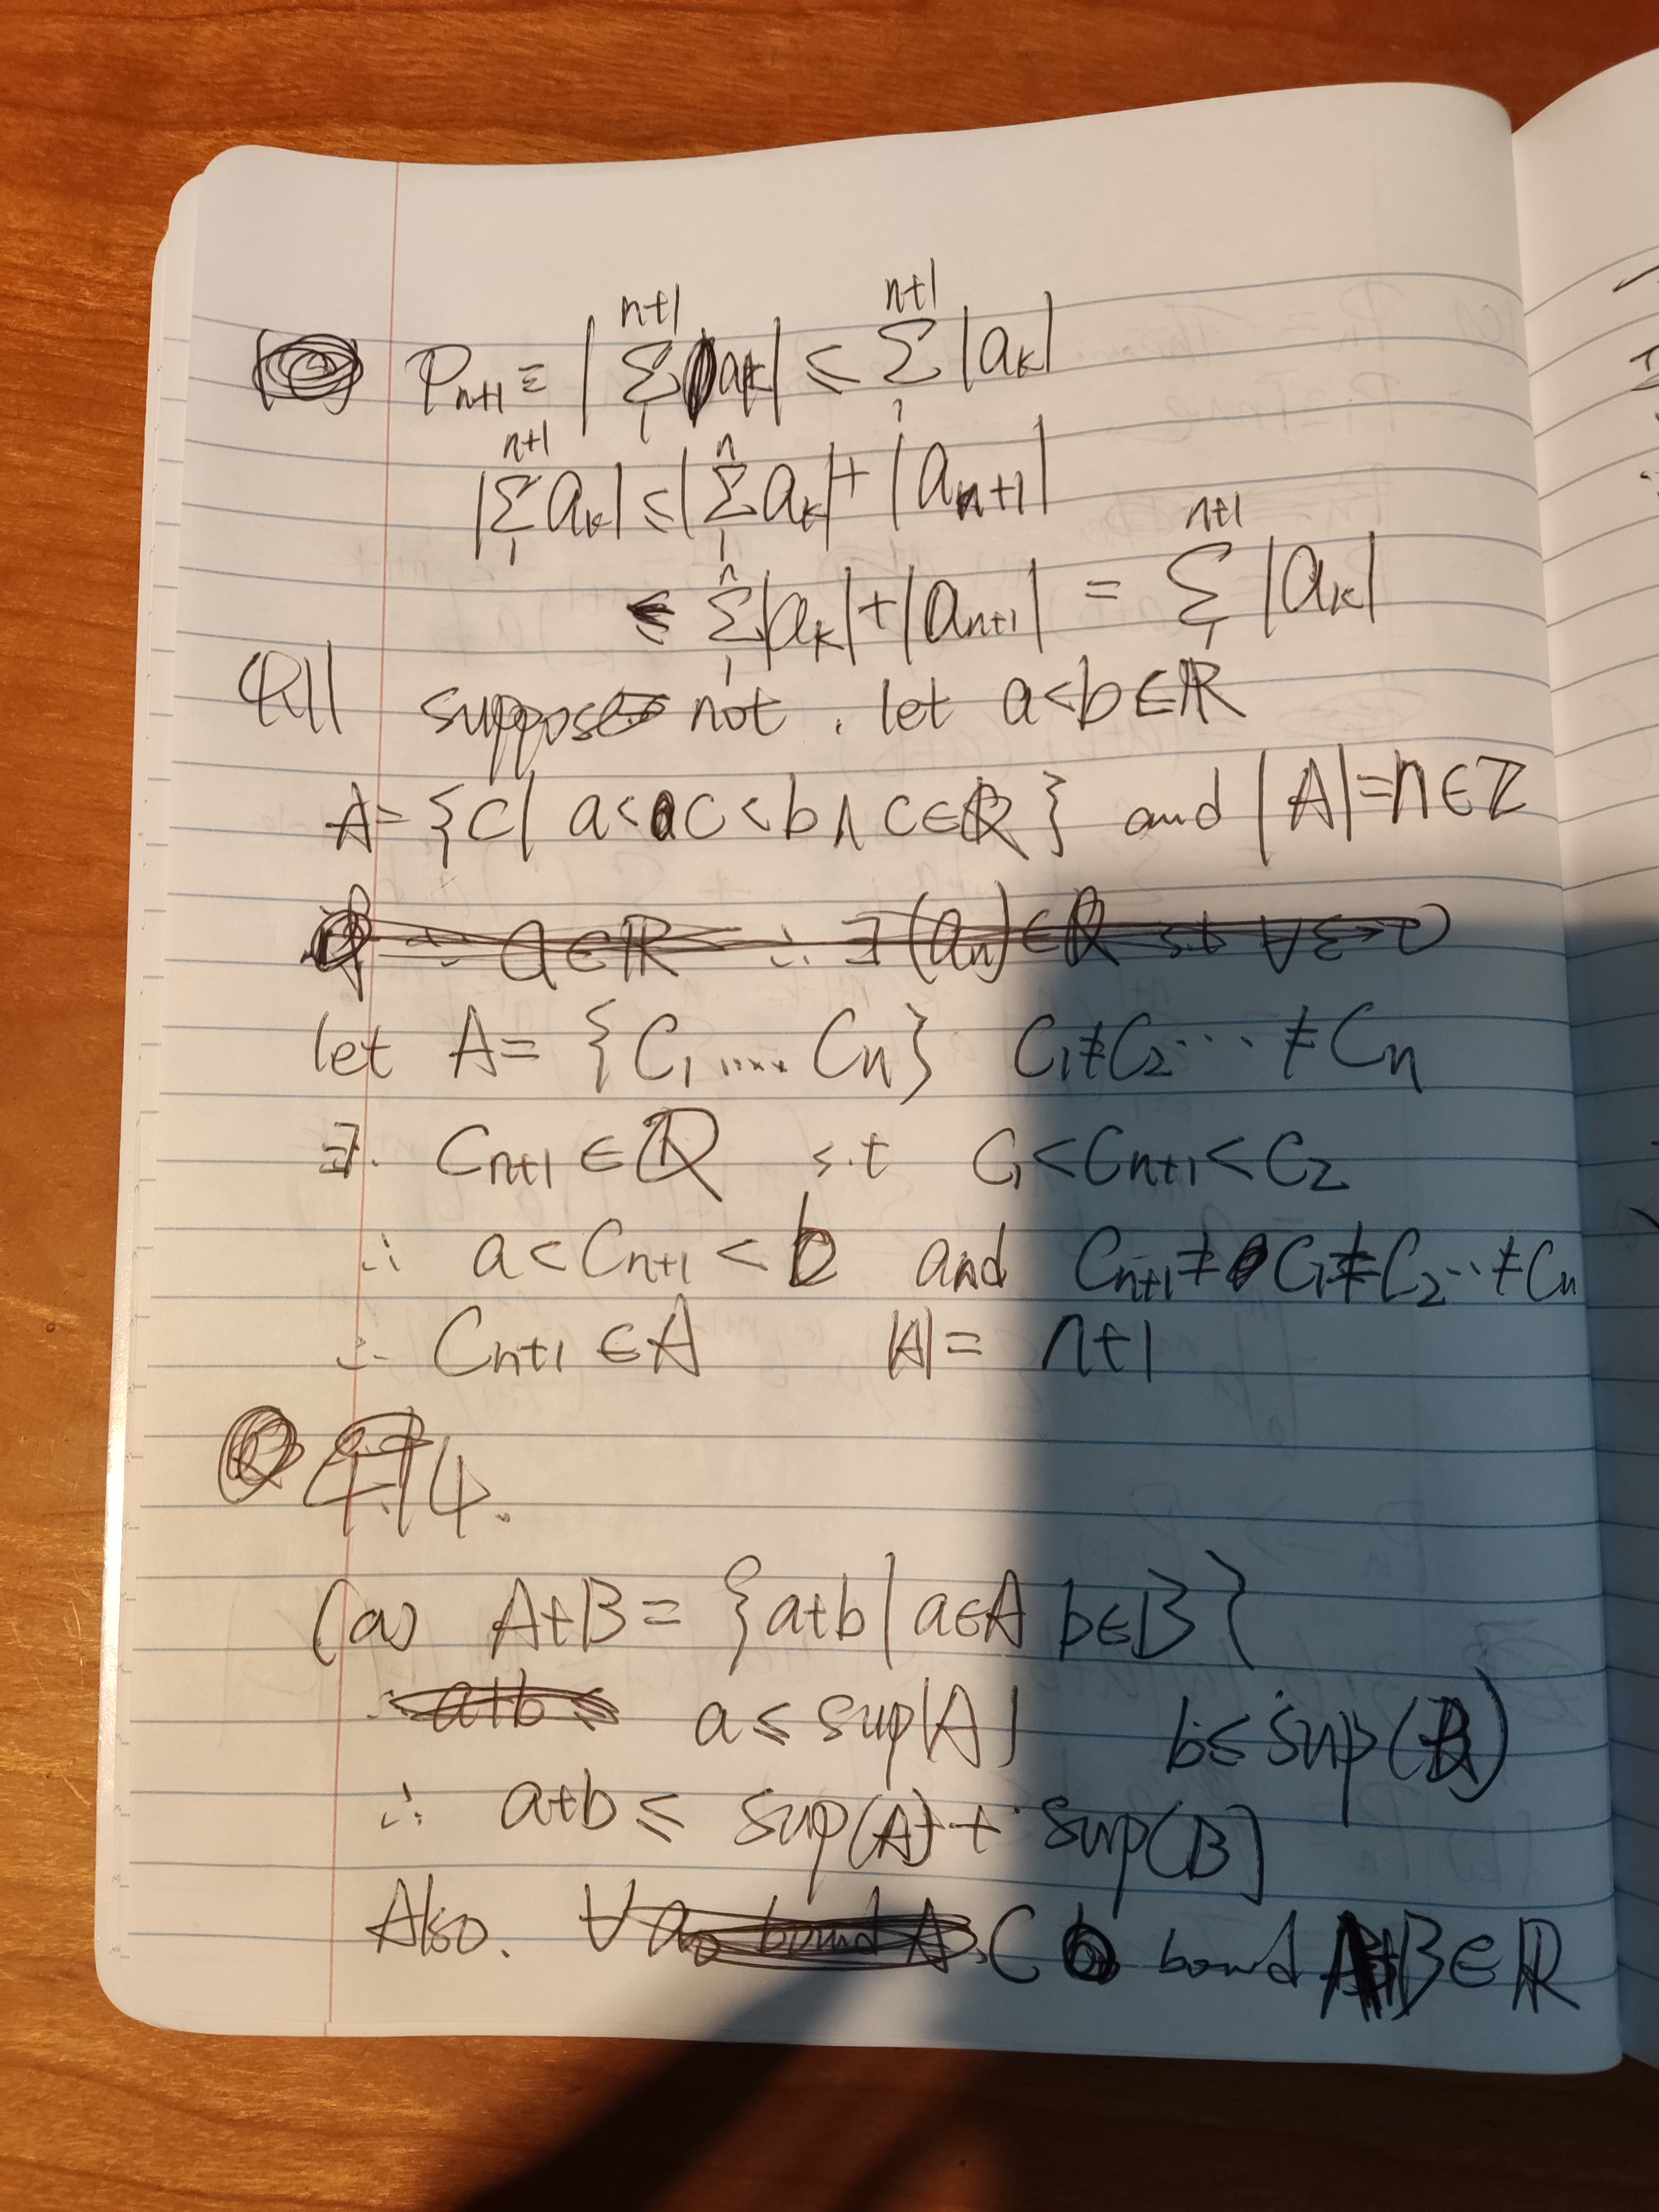 P_{n+1} ≡ |∑_1^{n+1} a_k| ≤ ∑_1^{n+1} |a_k|
|∑_1^{n+1} a_k| ≤ |∑_1^n a_k| + |a_{n+1}|
≤ ∑_1^n |a_k| + |a_{n+1}| = ∑_1^{n+1} |a_k|
Q11 suppose not. let a<b∈ℝ
A={C| a<C<b ∧ C∈ℚ} and |A|=n∈ℤ
∵ a∈ℝ ∴ ∃(a_n)∈ℚ s.t ∀ε>0
let A= {C_1 ..... C_n} C_1≠C_2... ≠C_n
∃. C_{n+1} ∈ℚ s.t C_1<C_{n+1}<C_2
∴ a<C_{n+1}<b and C_{n+1}≠C_1≠C_2..≠C_n
∴ C_{n+1}∈A |A|= n+1
4.14.
(a) A+B = {a+b | a∈A b∈B}
∴ a+b ≤ a≤sup(A) b≤sup(B)
∴ a+b ≤ sup(A)+sup(B)
Also. ∀ a_0 bound A, C bound A+B∈ℝ